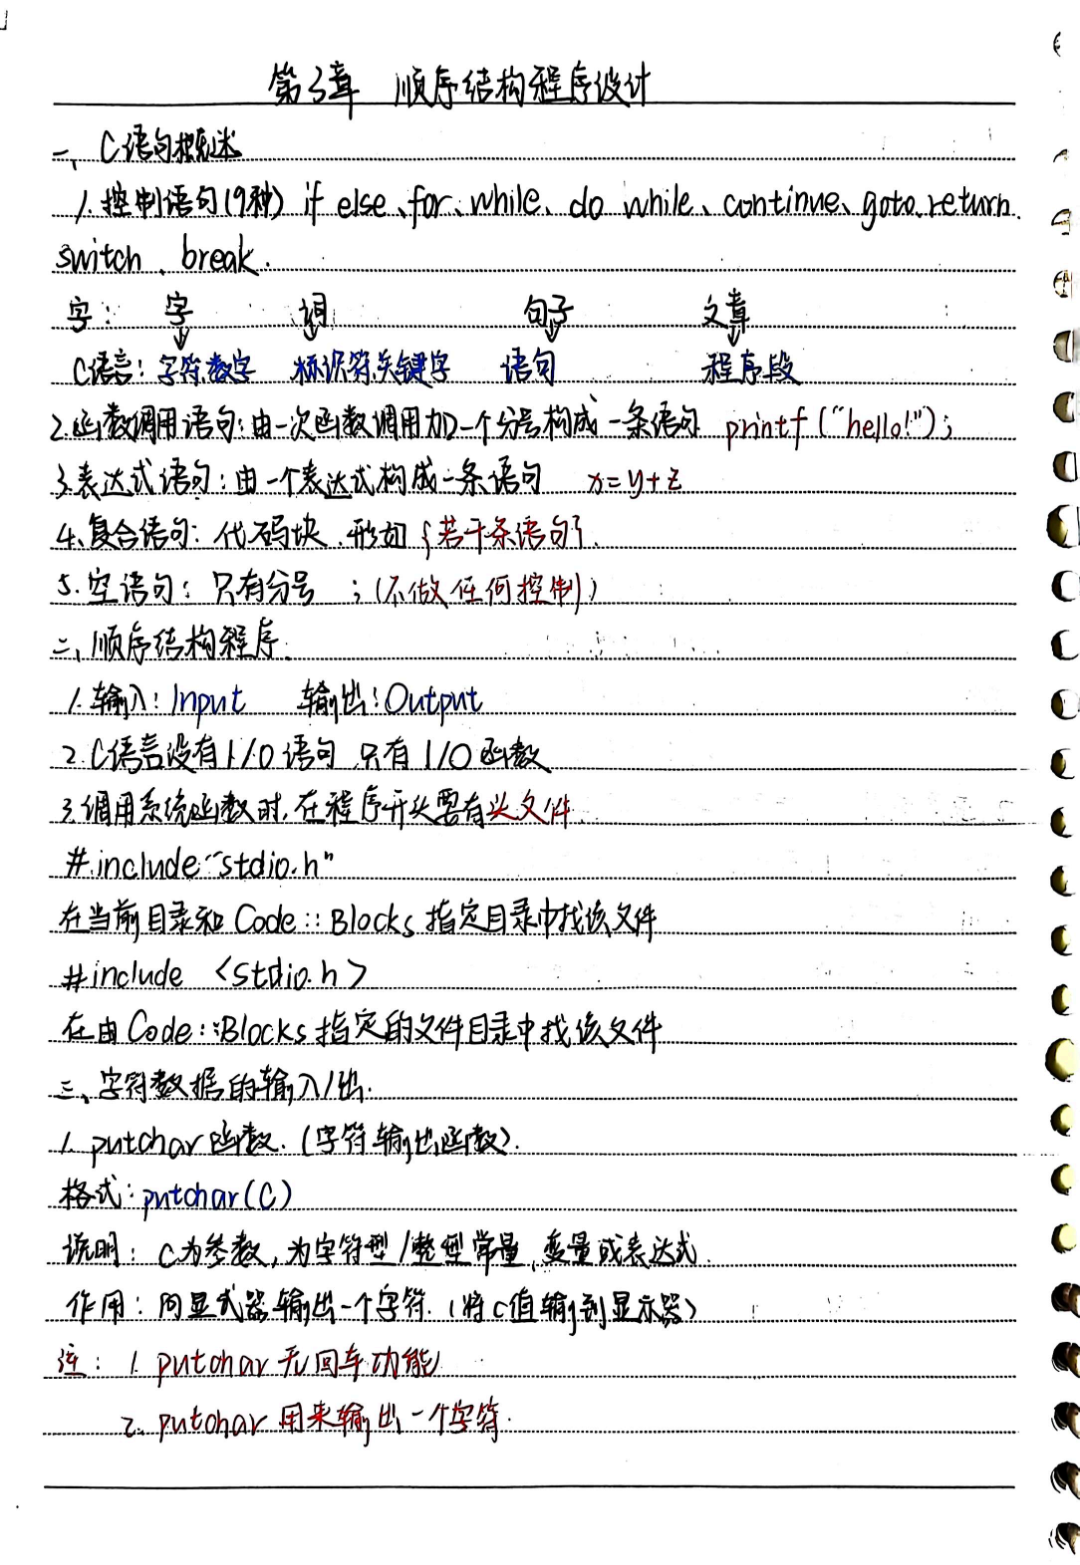 第3章 顺序结构程序设计
一、C语句概述
1.控制语句(9种) if else、for、while、do while、continue、goto、return、
switch、break.
字: 字 词 句子 文章
C语言: 字符、数字 标识符、关键字 语句 程序段
2.函数调用语句:由一次函数调用加一个分号构成一条语句 printf("hello!");
3.表达式语句:由一个表达式构成一条语句 x=y+z
4.复合语句: 代码块.形如{若干条语句}.
5.空语句: 只有分号 ;(不做任何控制)
二、顺序结构程序.
1.输入: Input 输出:Output
2.C语言没有I/O语句 只有I/O函数
3.调用系统函数时,在程序开头要有头文件
#include"stdio.h"
在当前目录和Code::Blocks指定目录中找该文件
#include <stdio.h>
在由Code::Blocks指定的文件目录中找该文件
三、字符数据的输入/出.
1. putchar函数.(字符输出函数).
格式:putchar(C)
说明: C为参数,为字符型/整型常量、变量或表达式.
作用: 向显式器输出一个字符.(将c值输到显示器)
注: 1. putchar无回车功能
2. putchar用来输出一个字符.